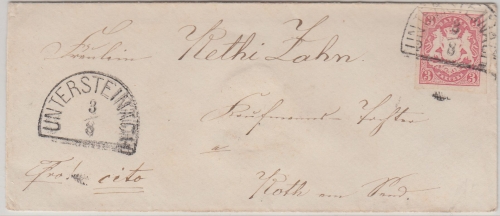 Fräulein Kethi Zahn
Kaufmanns-Tochter
Roth am Sand.
Fro! cito
UNTERSTEINACH
3
8
3
8
3
3